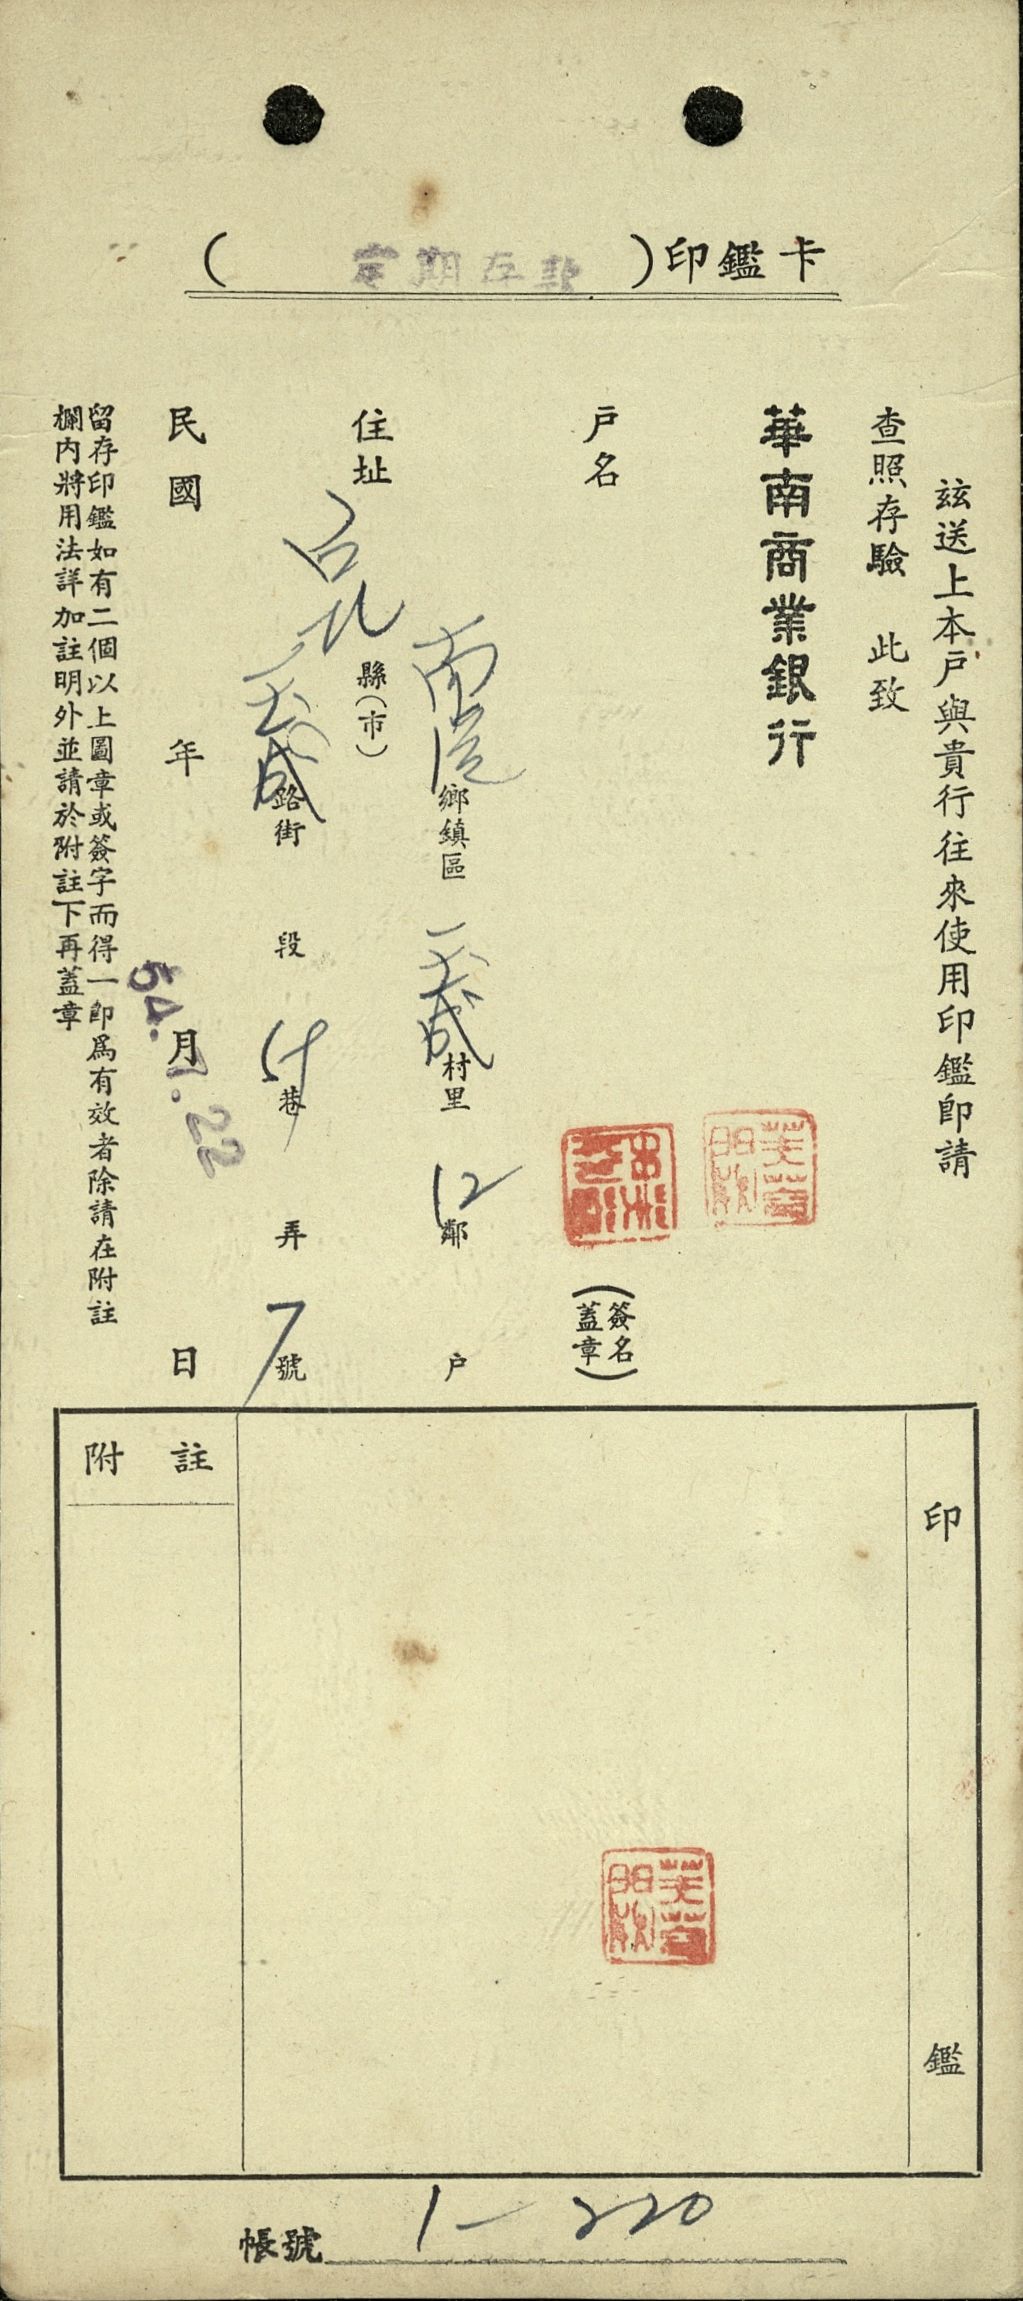 (定期存款)印鑑卡
茲送上本戶與貴行往來使用印鑑即請
查照存驗 此致
華南商業銀行
戶名 (簽名蓋章)
南港鄉鎮區 玉成村里 12鄰 戶
住址 台北縣(市)
玉成路街 段 巷 弄 7號
民國 年 月 日
54.7.22
留存印鑑如有二個以上圖章或簽字而得一即為有效者除請在附註
欄內將用法詳加註明外並請於附註下再蓋章
印鑑
附註
帳號 1-220